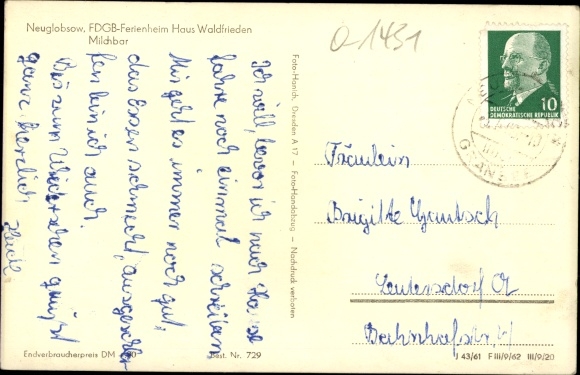 Neuglobsow, FDGB-Ferienheim Haus Waldfrieden
Milchbar
Ich will, bevor ich nach Hause
fahre noch einmal schreiben
Mir geht es immer noch gut,
das Essen schmeckt, ausgeschla-
fen bin ich auch.
Bis zum Wiedersehen grüßt
ganz herzlich
Endverbraucherpreis DM
Best. Nr. 729
Foto-Hanich, Dresden A 17 — Foto-Handabzug — Nachdruck verboten
0-1431
10
DEUTSCHE
DEMOKRATISCHE REPUBLIK
Fräulein
Brigitte
Bahnhofstr.
43/61 F III/9/62 III/9/20